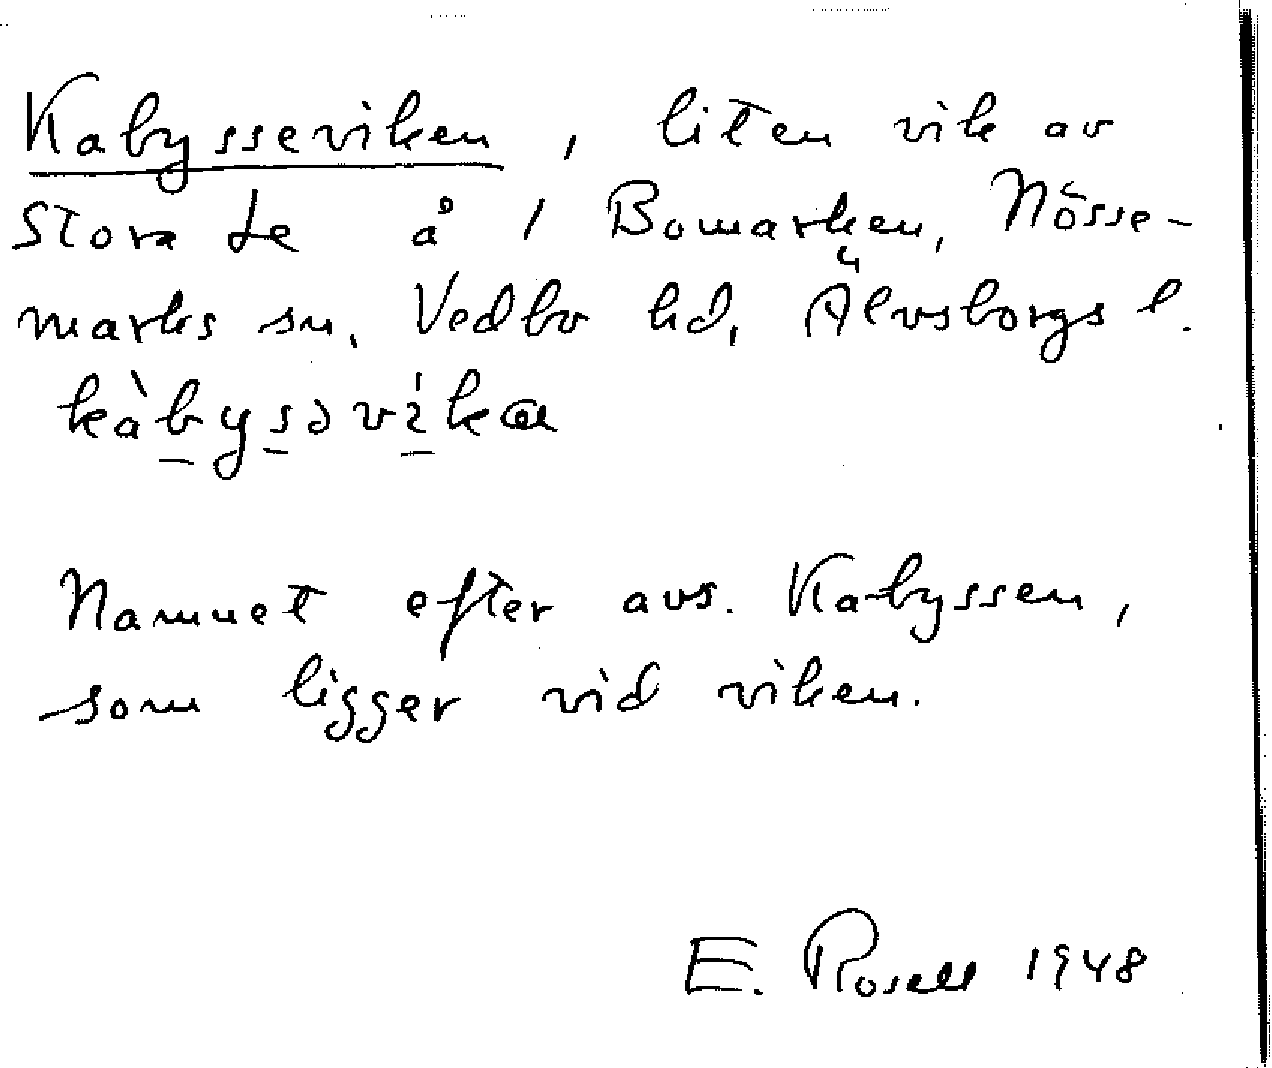 Kabysseviken, liten vik av
Stora Le å 1 Bomarken, Nösse-
marks sn, Vedbo hd, Älvsborgs l.
Namnet efter avs. Kabyssen,
som ligger vid viken.
E. Rosell 1948